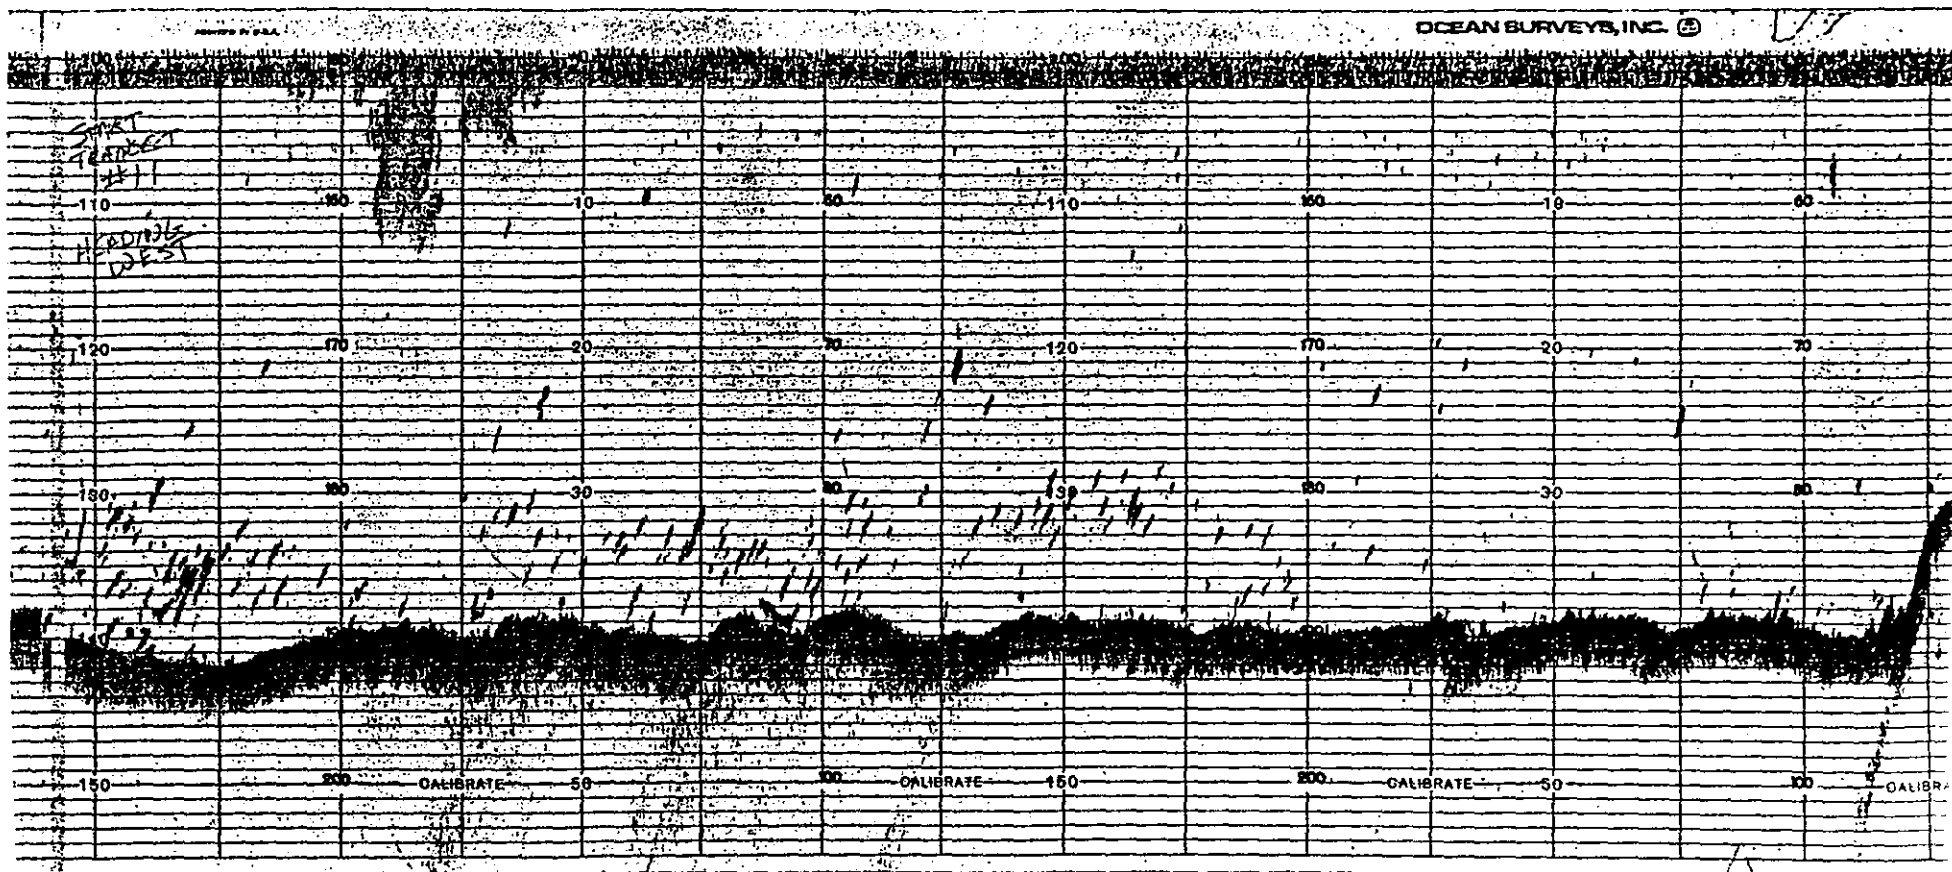 PRINTED IN U.S.A.
OCEAN SURVEYS, INC.
100 100
START
TRANSECT
#11
110 160 10 60 110 160 10 60
HEADING
WEST
120 170 20 70 120 170 20 70
130 180 30 80 130 180 30 80
150 200 CALIBRATE 50 100 CALIBRATE 150 200 CALIBRATE 50 100 CALIBRA